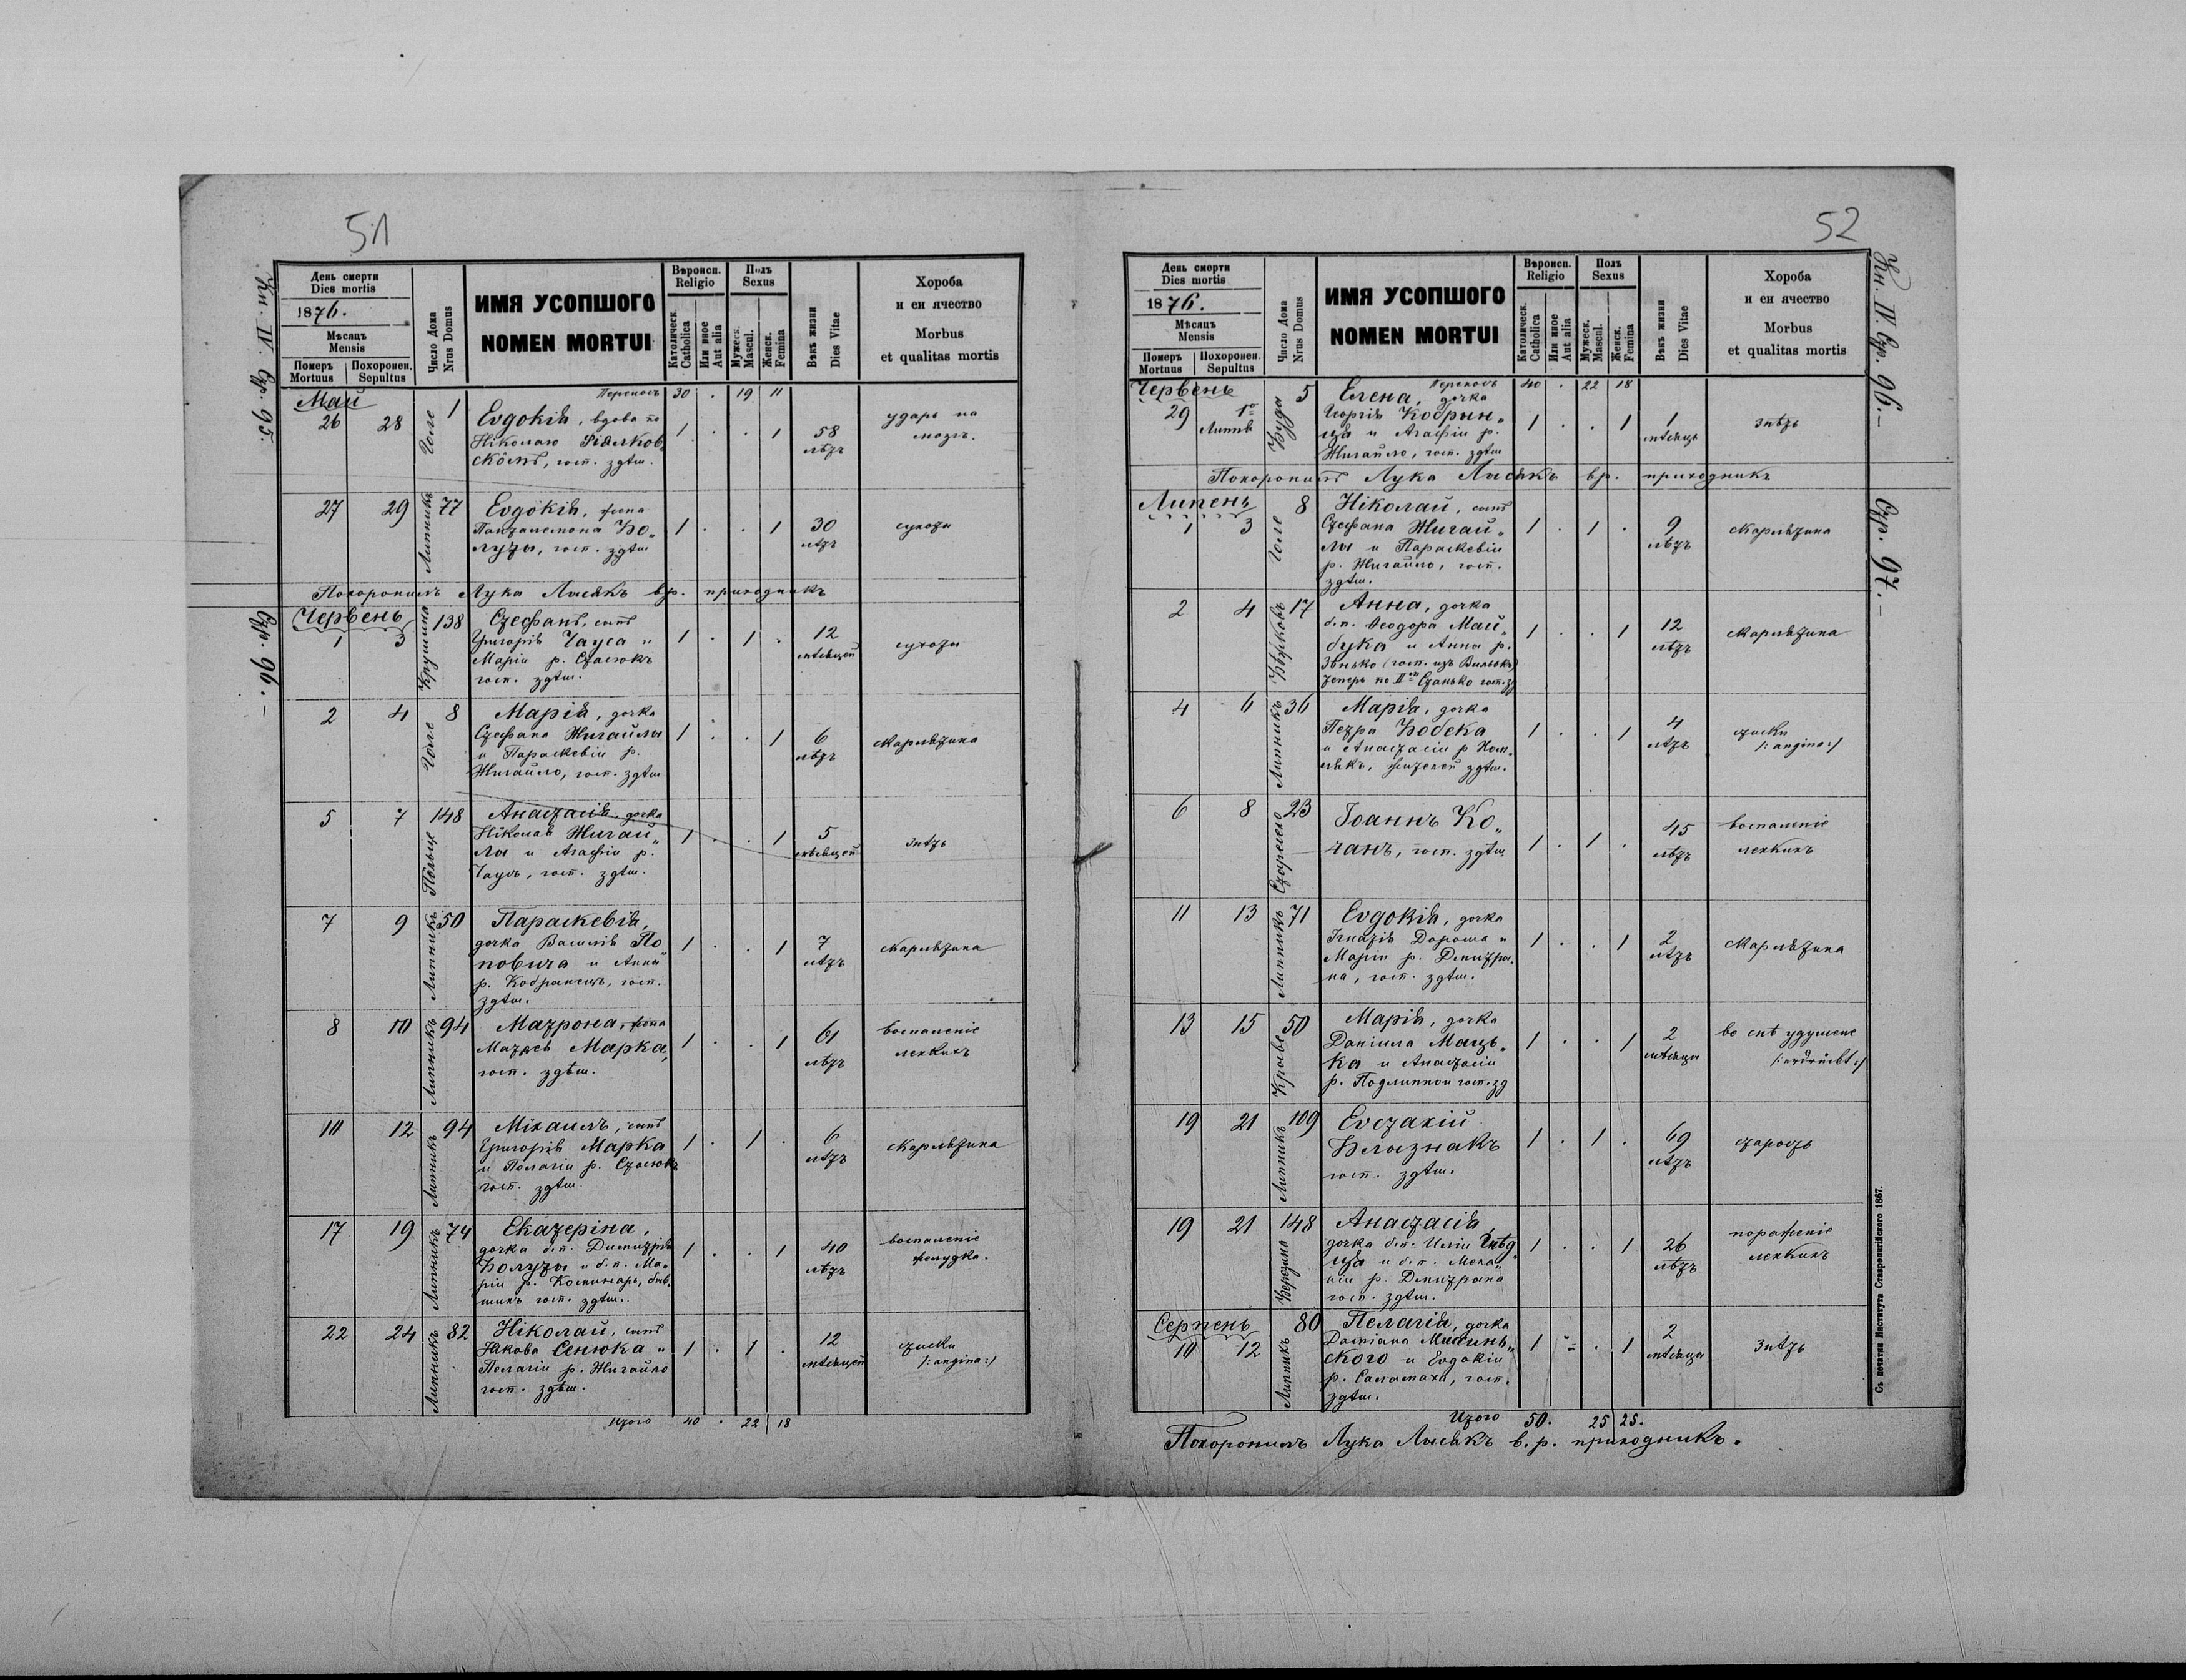 51
Кн. IV. Стр. 95.
Стр. 96. –
День смерти
Dies mortis
1876.
Мѣсяцъ
Mensis
Померъ
Mortuus
Похоронен.
Sepultus
Число Дома
Nrus Domus
ИМЯ УСОПШОГО
NOMEN MORTUI
Вѣроисп.
Religio
Католическ.
Catholica
Или иное
Aut alia
Полъ
Sexus
Мужеск.
Mascul.
Женск.
Femina
Вѣкъ жизни
Dies Vitae
Хороба
и еи ячество
Morbus
et qualitas mortis
Переносъ 30 . 19 11
Май
26 28 Голе 1
Евдокія, вдова по
Ніколаю Фіялков
скомъ, госп. здѣш.
1 . . 1
58
лѣтъ
ударъ на
мозгъ.
27 29 Липникъ 77
Евдокія, жена
Панталемона Бо„
луты, госп. здѣш
1 . . 1
30
лѣтъ
сухоты
Похоронилъ Лука Лысякъ вр. приходникъ
Червень
1 3 Крушина 138
Стефанъ, сынъ
Григорія Чауса и
Маріи р. Стасюкъ
госп. здѣш.
1 . 1 .
12
мѣсяцей
сухоты
2 4 Голе 8
Марія, дочка
Стефана Жигайлы
и Параскевіи р.
Жигайло, госп. здѣш
1 . . 1
6
лѣтъ
скарлятина
5 7 Польце 148
Анастасія, дочка
Ніколая Жигай„
лы и Агафіи р.
Чаусъ, госп. здѣш.
1 . . 1
5
мѣсяцей
знѣтъ
7 9 Липникъ 50
Параскевія,
дочка Василія По
повича и Анны
р. Кобранецъ, госп.
здѣш.
1 . . 1
7
лѣтъ
скарлятина
8 10 Липникъ 94
Матрона, жена
Матвея Марка,
госп. здѣш.
1 . . 1
61
лѣтъ
воспаленіе
легкихъ
10 12 Липникъ 94
Міхаилъ, сынъ
Григорія Марка
и Пелагіи р. Стасюкъ
госп. здѣш.
1 . 1 .
6
лѣтъ
скарлятина
17 19 Липникъ 74
Екатеріна,
дочка б.п. Димитрія
Болуты и б.п. Ма„
ріи р. Коминарь, быв.
шихъ госп. здѣш.
1 . . 1
40
лѣтъ
воспаленіе
желудка.
22 24 Липникъ 82
Ніколай, сынъ
Якова Сенюка и
Пелагіи р. Жигайло
госп. здѣш.
1 . 1 .
12
мѣсяцей
стиски
/: angina :/
Итого 40 . 22 18
52
Кн. IV Стр. 96. –
Стр. 97. –
День смерти
Dies mortis
1876.
Мѣсяцъ
Mensis
Померъ
Mortuus
Похоронен.
Sepultus
Число Дома
Nrus Domus
ИМЯ УСОПШОГО
NOMEN MORTUI
Вѣроисп.
Religio
Католическ.
Catholica
Или иное
Aut alia
Полъ
Sexus
Мужеск.
Mascul.
Женск.
Femina
Вѣкъ жизни
Dies Vitae
Хороба
и еи ячество
Morbus
et qualitas mortis
Переносъ 40 . 22 18
Червень
29 1го Липня Буда 5
Елена, дочка
Георгія Кобрын„
ця и Агафіи р.
Жигайло, госп. здѣш
1 . . 1
1
мѣсяцъ
знѣтъ
Похоронилъ Лука Лысякъ вр. приходникъ
Липень
1 3 Голе 8
Ніколай, сынъ
Стефана Жигай„
лы и Параскевіи
р. Жигайло, госп.
здѣш.
1 . 1 .
9
лѣтъ
скарлятина
2 4 17
Анна, дочка
б.п. Ѳеодора Май„
бука и Анны р.
Зѣнько (госп. изъ
теперь по II Станько госп. зд
1 . . 1
12
лѣтъ
скарлятина
4 6 Липникъ 36
Марія, дочка
Петра Бобека
и Анастасіи р Хом„
якъ, жителей здѣш.
1 . . 1
4
лѣтъ
стиски
/: angina :/
6 8 Старесело 23
Іоаннъ Ко„
чанъ, госп. здѣш
1 . 1 .
45
лѣтъ
воспаленіе
легкихъ
11 13 Липникъ 71
Евдокія, дочка
Ігнатія Дороша и
Маріи р. Дмитра„
на, госп. здѣш.
1 . . 1
2
лѣтъ
скарлятина
13 15 Кривe 50
Марія, дочка
Даніила Мацъ„
ка и Анастасіи
р. Подлипной госп. зд
1 . . 1
2
мѣсяцы
во снѣ удушене
/: erdrückt :/
19 21 Липникъ 109
Евстахій
Близнакъ
госп. здѣш.
1 . 1 .
69
лѣтъ
старость
19 21 148
Анастасія,
дочка б.п. Иліи Гнѣд„
ця и б.п. Мела„
ніи р. Дмитрана
госп. здѣш.
1 . . 1
26
лѣтъ
пораженіе
легкихъ
Серпень
10 12 Липникъ 80
Пелагія, дочка
Даміана Мысинь„
ского и Евдокіи
р. Саламаха, госп.
здѣш.
1 . . 1
2
мѣсяцы
знѣтъ
Итого 50. 25 25.
Похоронилъ Лука Лысякъ в. р. приходникъ.
Съ печатни Института Ставропигійского 1867.